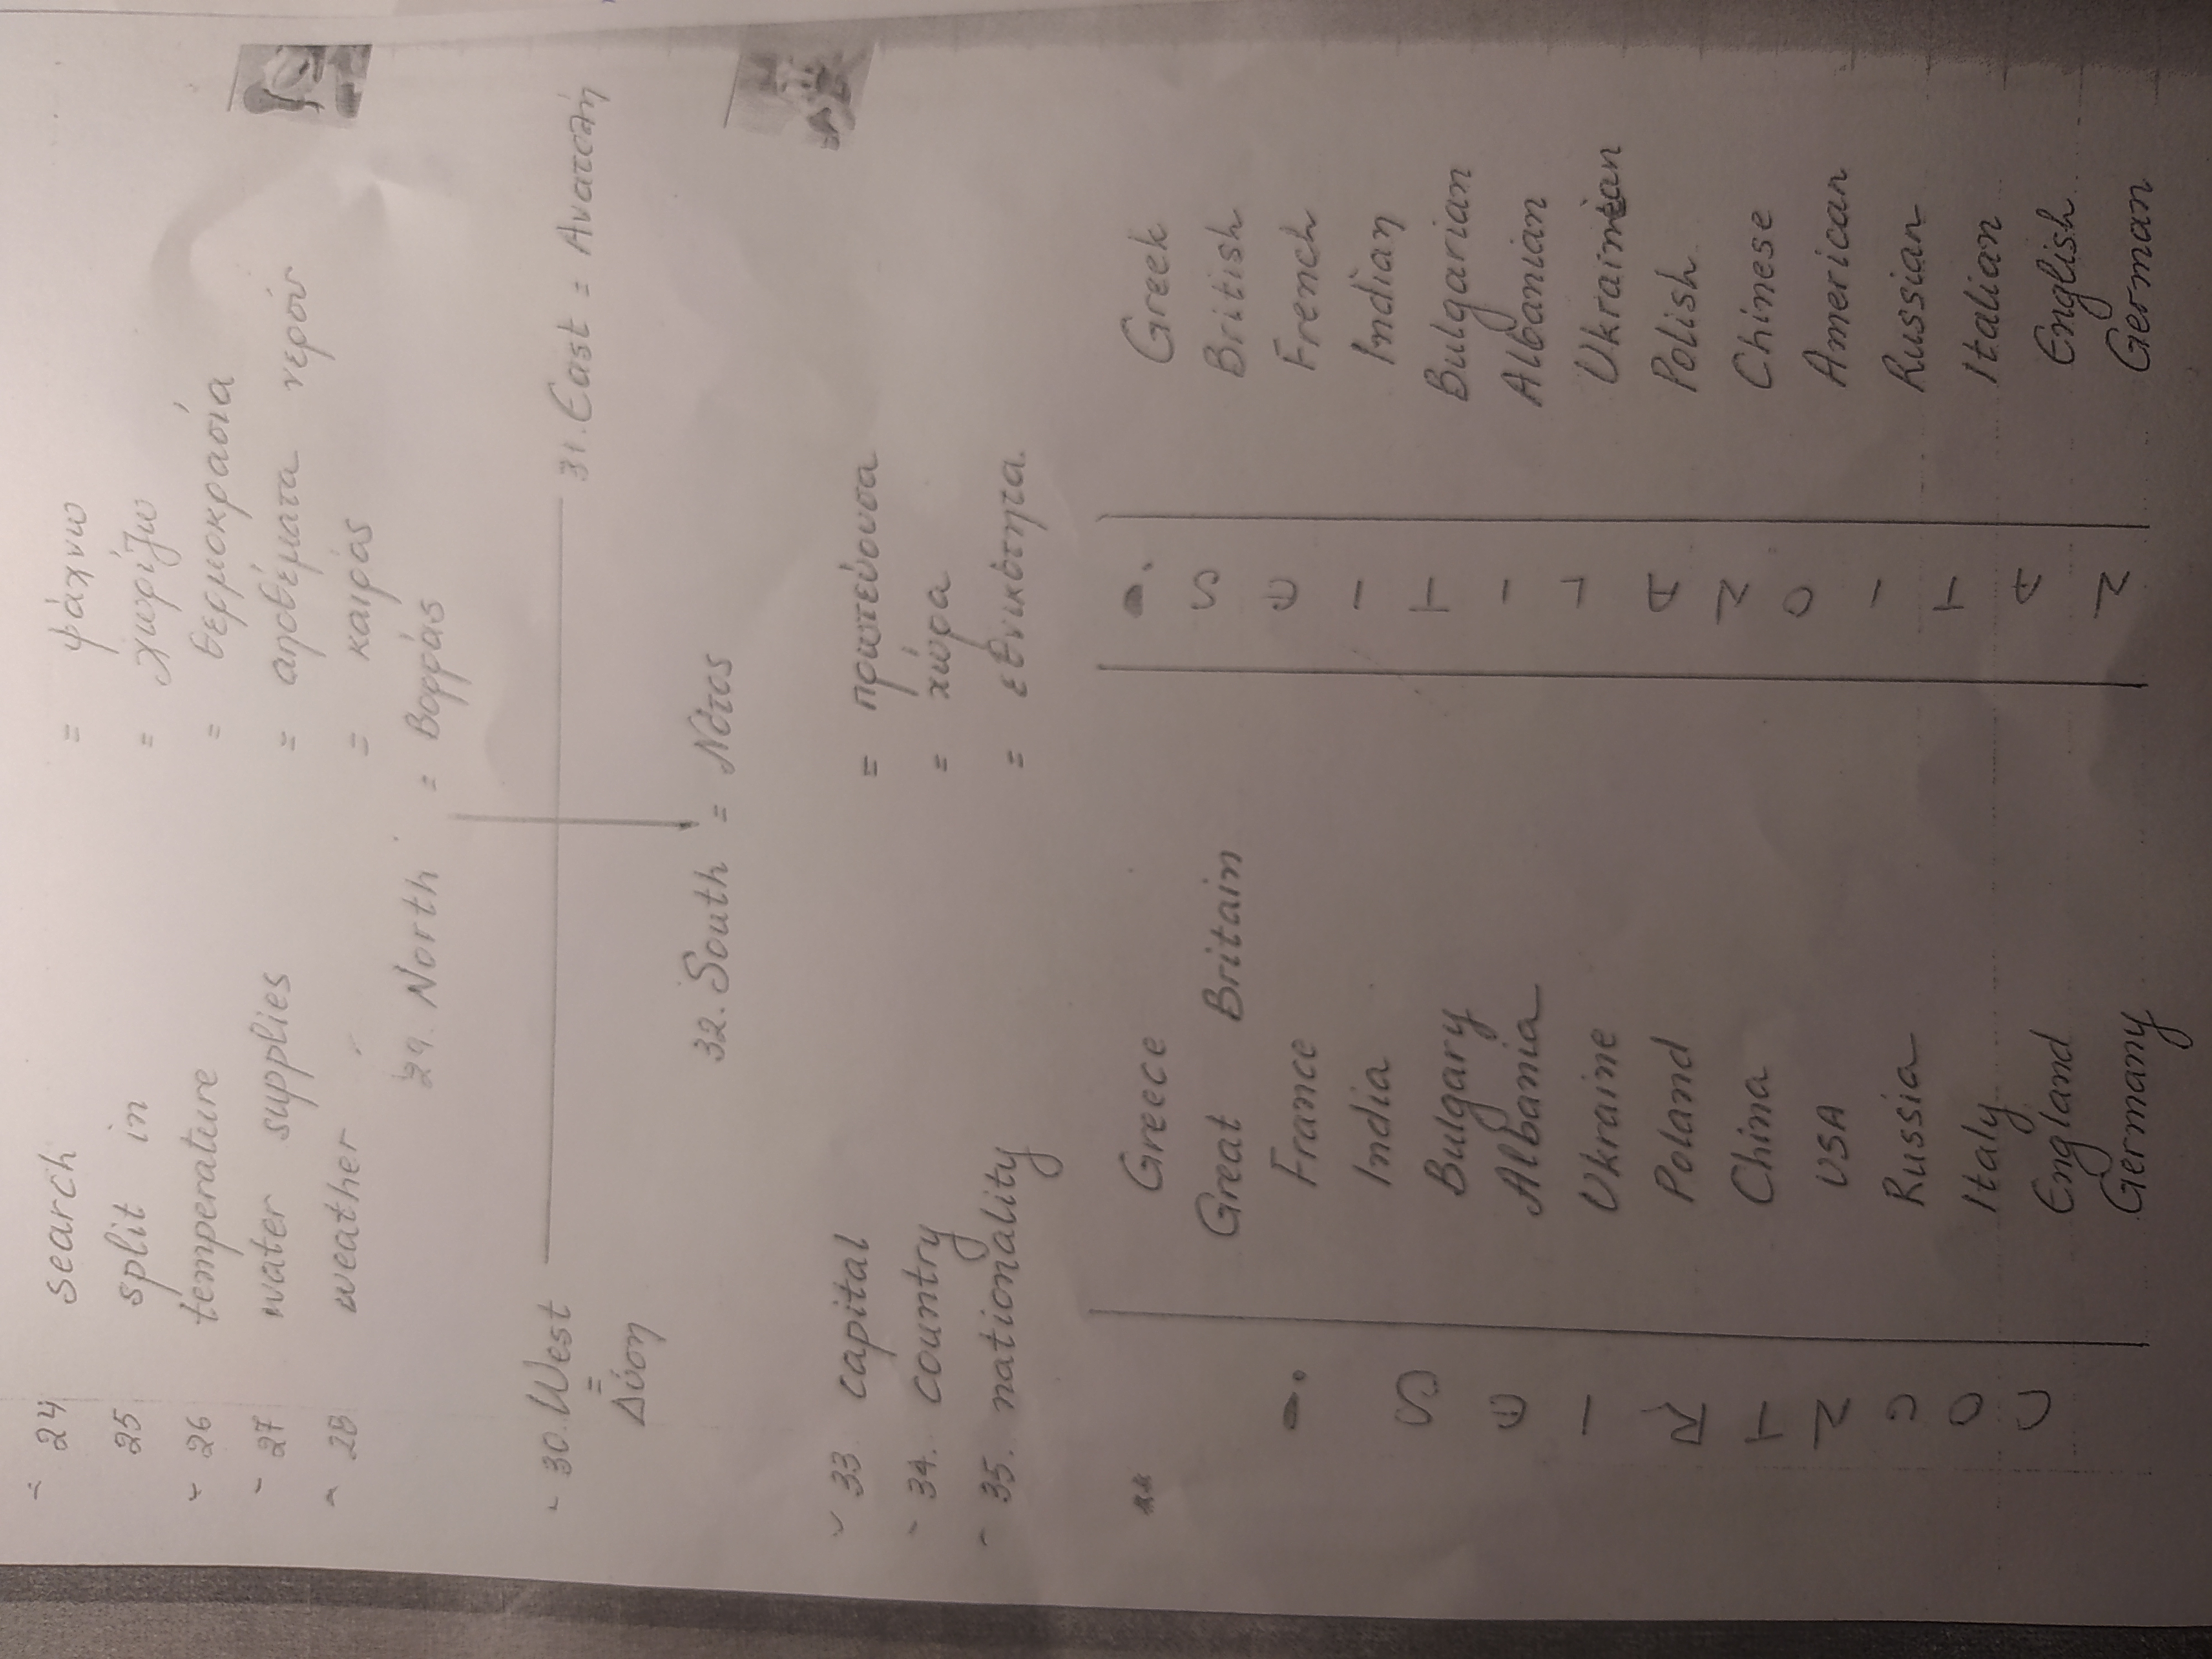 24 search = ψάχνω
25 split in = χωρίζω
26 temperature = θερμοκρασία
27 water supplies = αποθέματα νερού
28 weather = καιρός
29. North = Βορράς
30. West = Δύση
31. East = Ανατολή
32. South = Νότος
33 capital = πρωτεύουσα
34. country = χώρα
35. nationality = εθνικότητα
Greece Greek
Great Britain British
France French
India Indian
Bulgary Bulgarian
Albania Albanian
Ukraine
Poland Polish
China Chinese
USA American
Russia Russian
Italy Italian
England English
Germany German